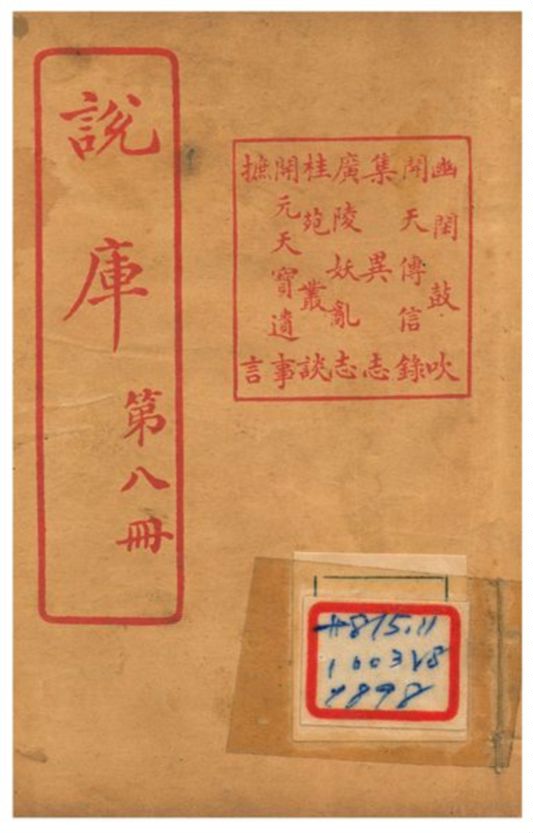 幽閒鼓吹
開天傳信錄
集異志
廣陵妖亂志
桂苑叢談
開元天寶遺事
摭言
說庫
第八冊
#815.11
1003V8